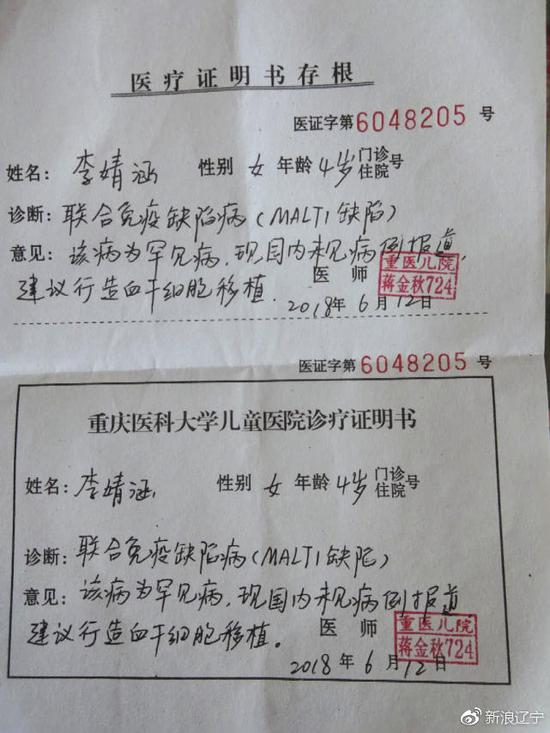 医疗证明书存根
医证字第6048205号
姓名：李婧涵 性别 女 年龄 4岁 门诊住院号
诊断：联合免疫缺陷病（MALT1缺陷）
意见：该病为罕见病，现国内未见病例报道，
医师 重医儿院 蒋金秋724
建议行造血干细胞移植。
2018年6月12日
医证字第6048205号
重庆医科大学儿童医院诊疗证明书
姓名：李婧涵 性别 女 年龄 4岁 门诊住院号
诊断：联合免疫缺陷病（MALT1缺陷）
意见：该病为罕见病，现国内未见病例报道，
医师 重医儿院 蒋金秋724
建议行造血干细胞移植。
2018年6月12日
新浪辽宁